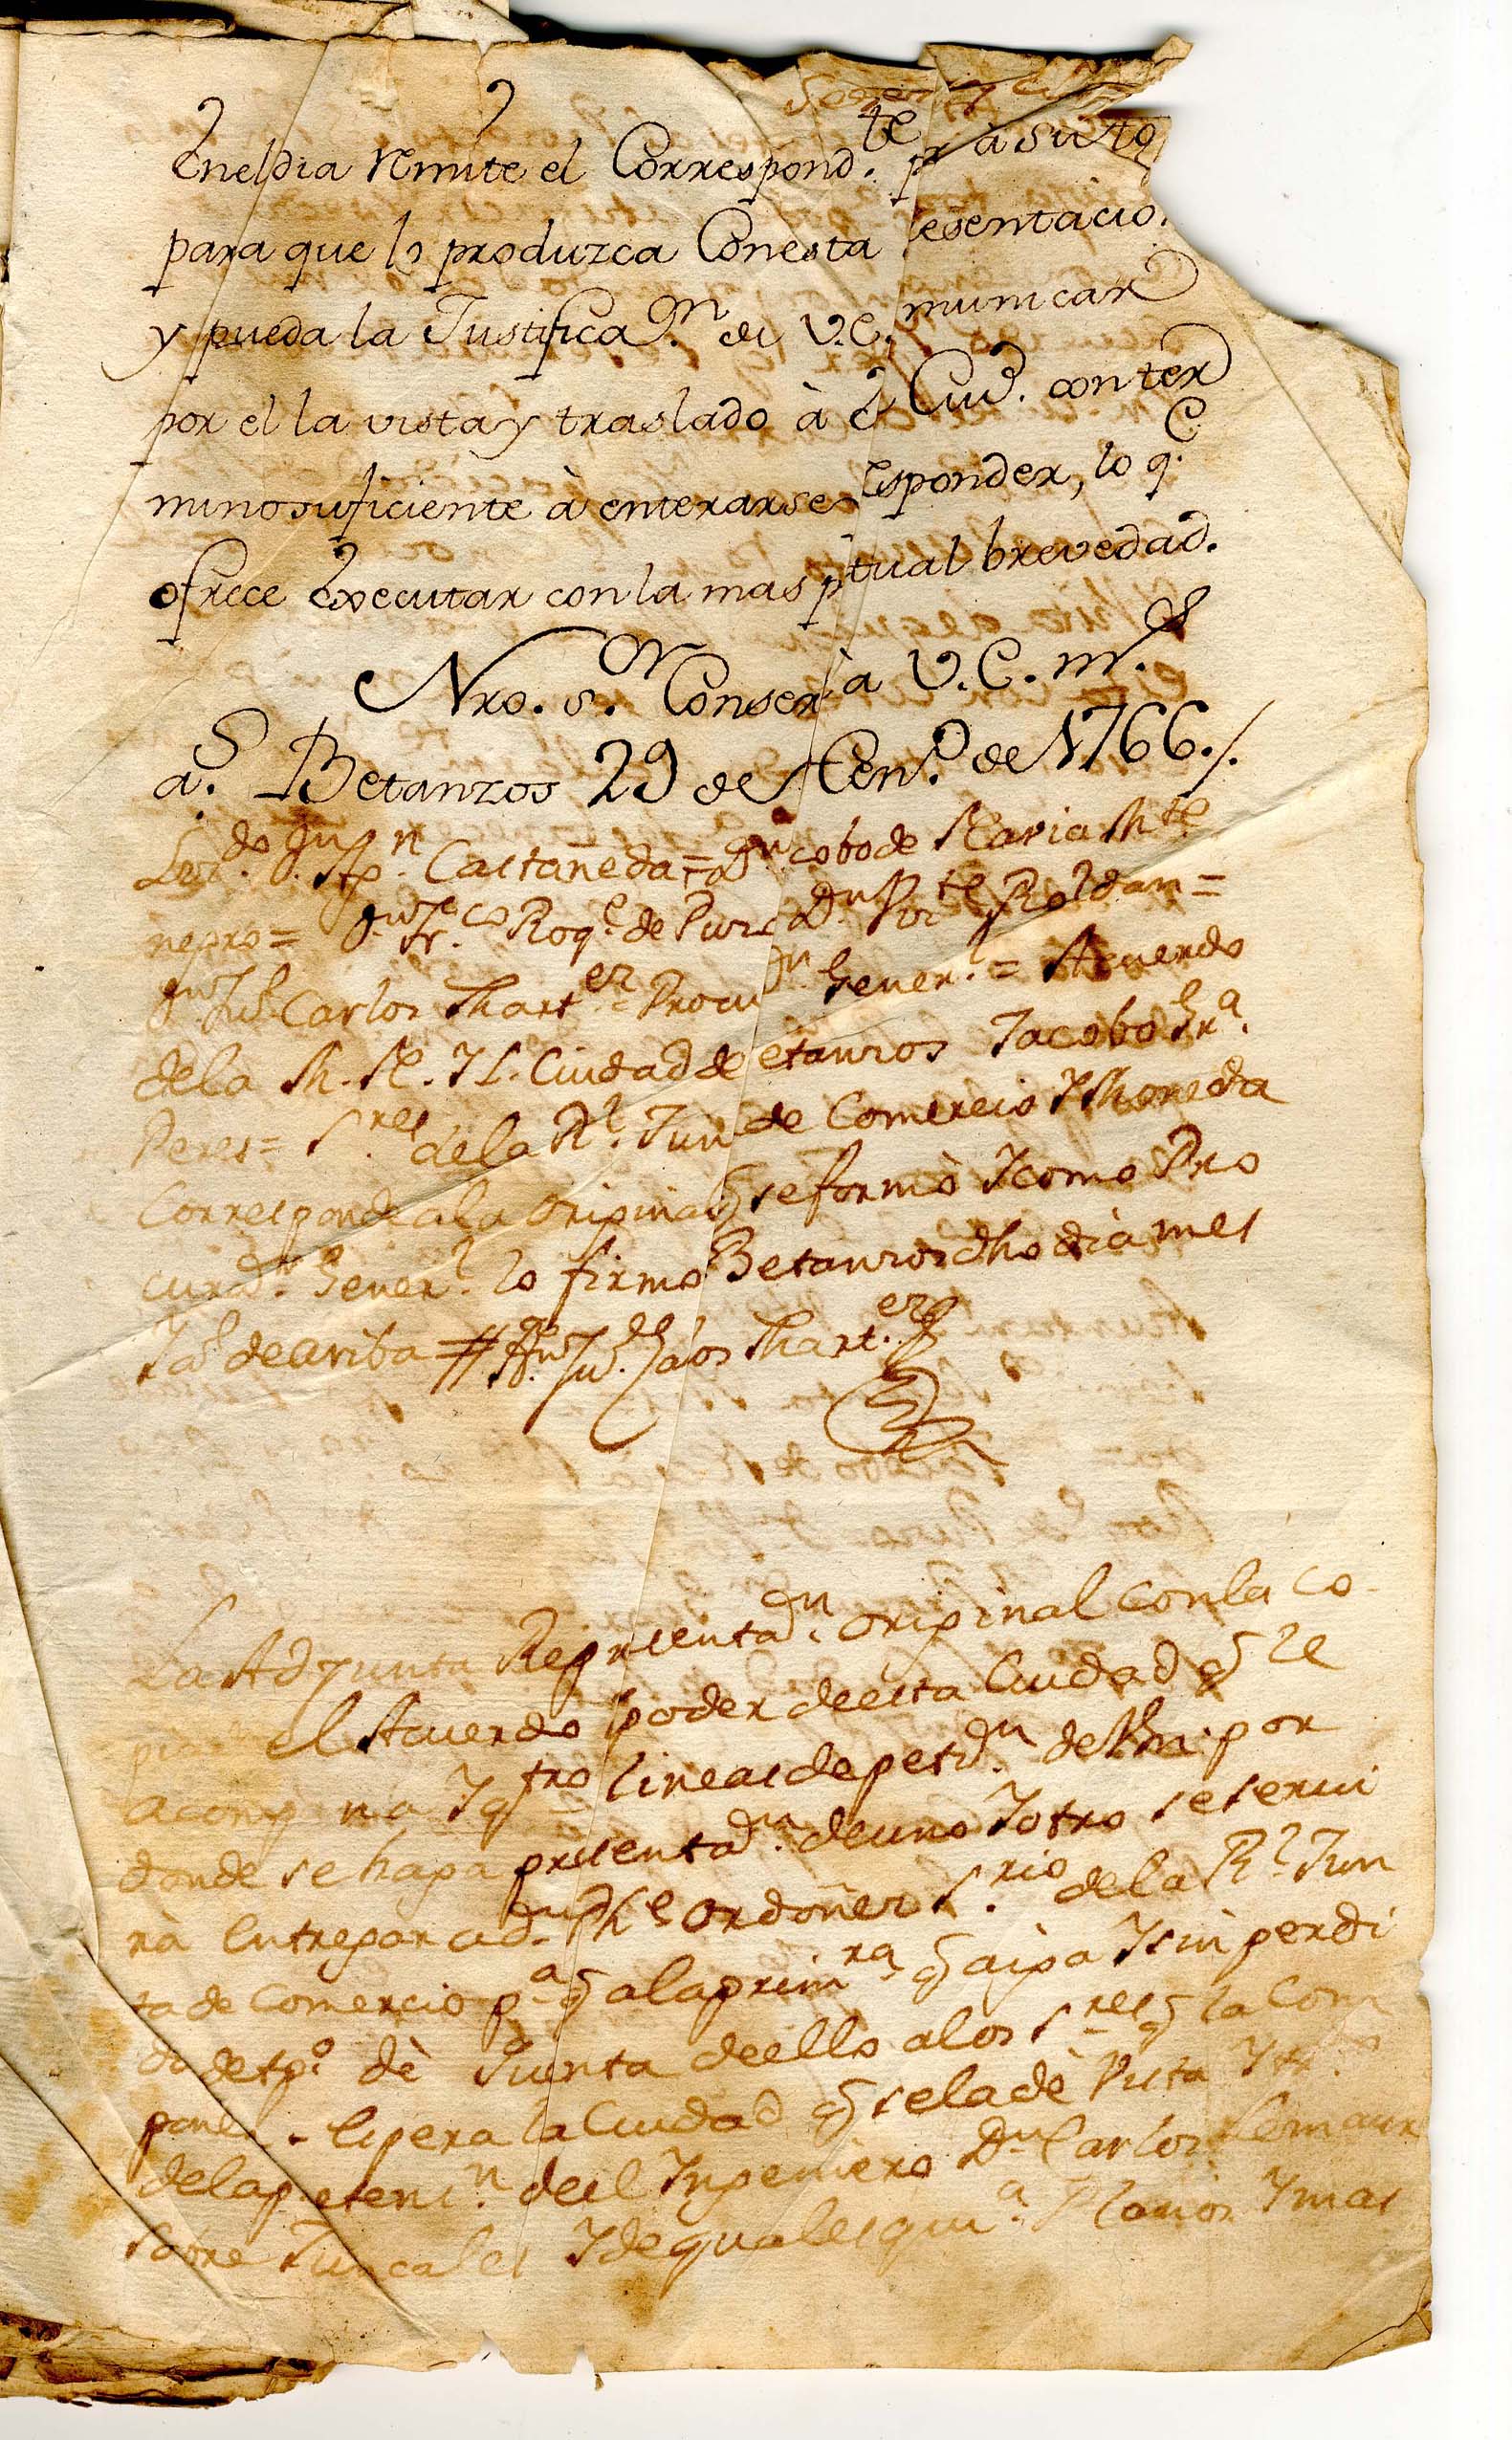 eneldia remite el Correspond.te pr à su
para que lo produzca Conesta esentacio
y pueda la Justifica.on de V.E. municar
por el la vista y traslado à Ciud. conter
minosuficiente à enterarse esponder, lo q.e
ofrece executar con la mas p tual brevedad.
Nro. s.or Conser a V.E. m.s
a.s Betanzos 29 de En.o de 1766./.
Lizdo. Castañeda = cobo de Maria
negro = Dn. Fr.co Roq.e de Dn. Vic.te Roldan =
Carlos Mart.ez Procu Gener.l = Acuerdo
dela M. N. Y L. Ciudad de etanzos Jacobo
Peres = S.res dela R.l Jun de Comercio Y Moneda
Corresponde ala original q se formò Y como Pro
curad.r Gener.l lo firmo Betanzos dho dia mes
Y a.o de arriba = # Carlos Mart.ez
La Adjunta Representaz.n original con la co-
el Acuerdo poder deesta Ciudad q le
acomp na Y q.tro lineas de petiz.n de por
donde se haga presentaz.n de uno Y otro se servi
rà Entregar a Dn. Ph.e Ordoñez S.rio de la R.l Jun
ta de Comercio p.a q ala prim.ra q aiga Y sin perdi
da detpo. dè Quenta deello alos S.res q la Com
ponen. Espera la Ciudad q sela dè Vista Y
dela p etenz.n deel Yngeniero Dn. Carlos Lemaur
Sobre Juncales Y de qualesqui.a Planos Y mas